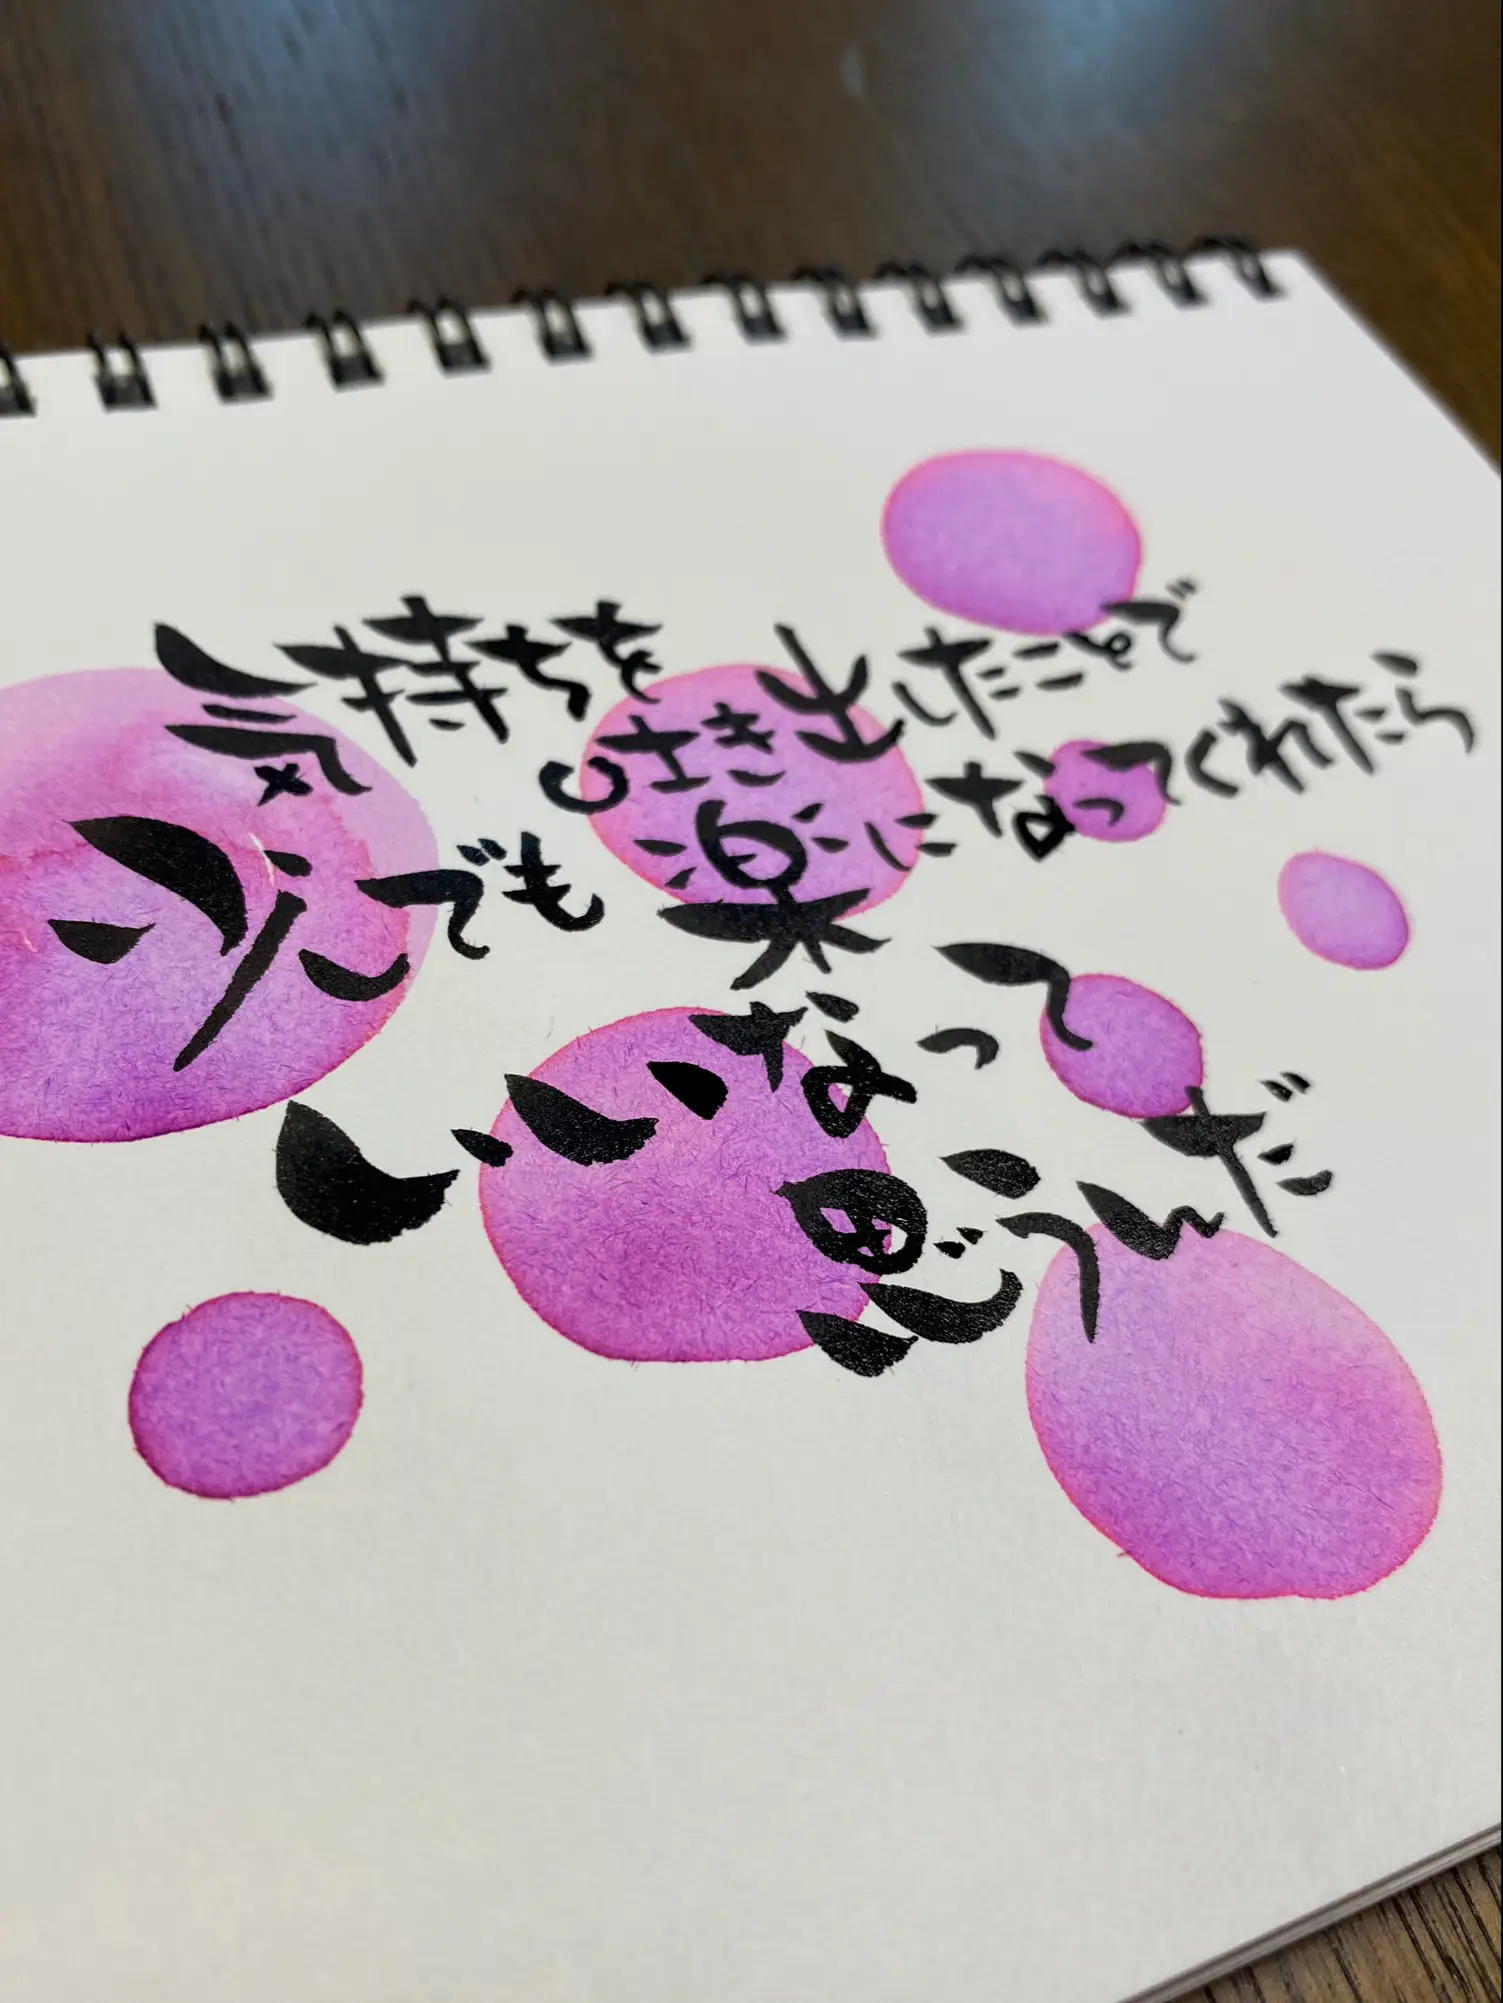 気持ちを
吐き出したことで
少しでも
楽になってくれたら
いいなって
思うんだ